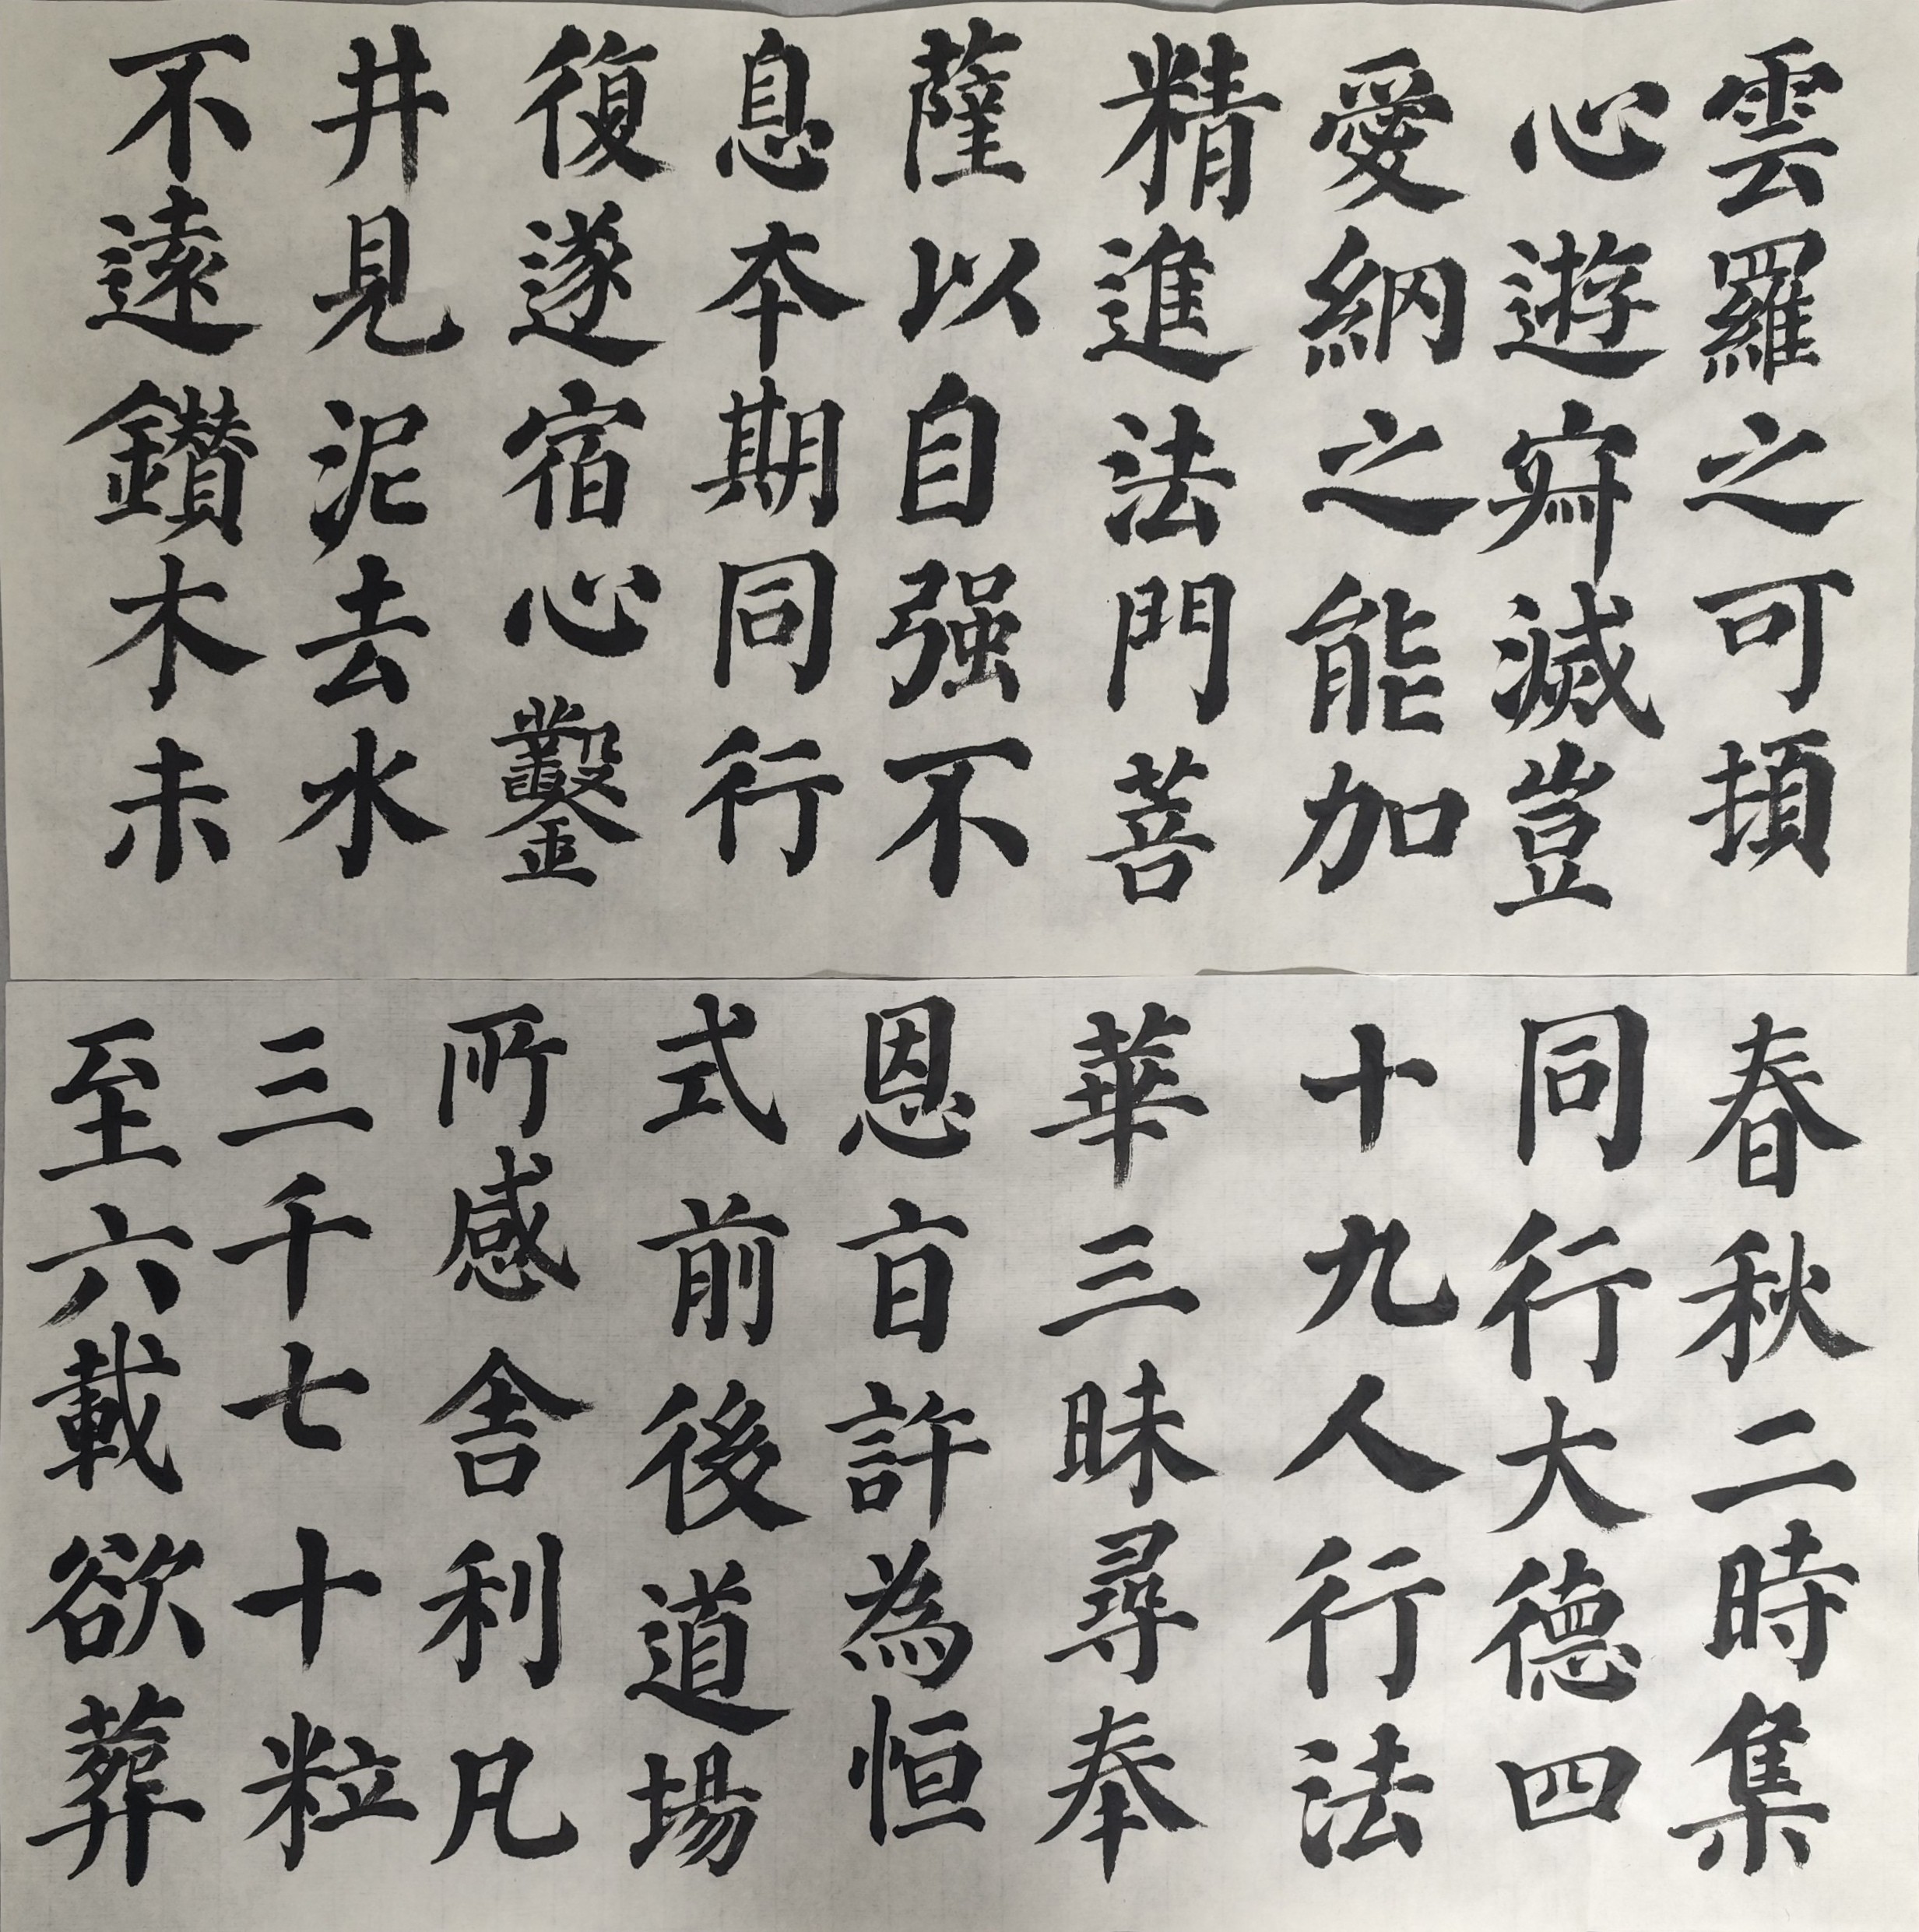 雲羅之可頓
心遊寂滅豈
愛網之能加
精進法門菩
薩以自强不
息本期同行
復遂宿心鑿
井見泥去水
不遠鑽木未
春秋二時集
同行大德四
十九人行法
華三昧尋奉
恩旨許為恒
式前後道場
所感舍利凡
三千七十粒
至六載欲葬